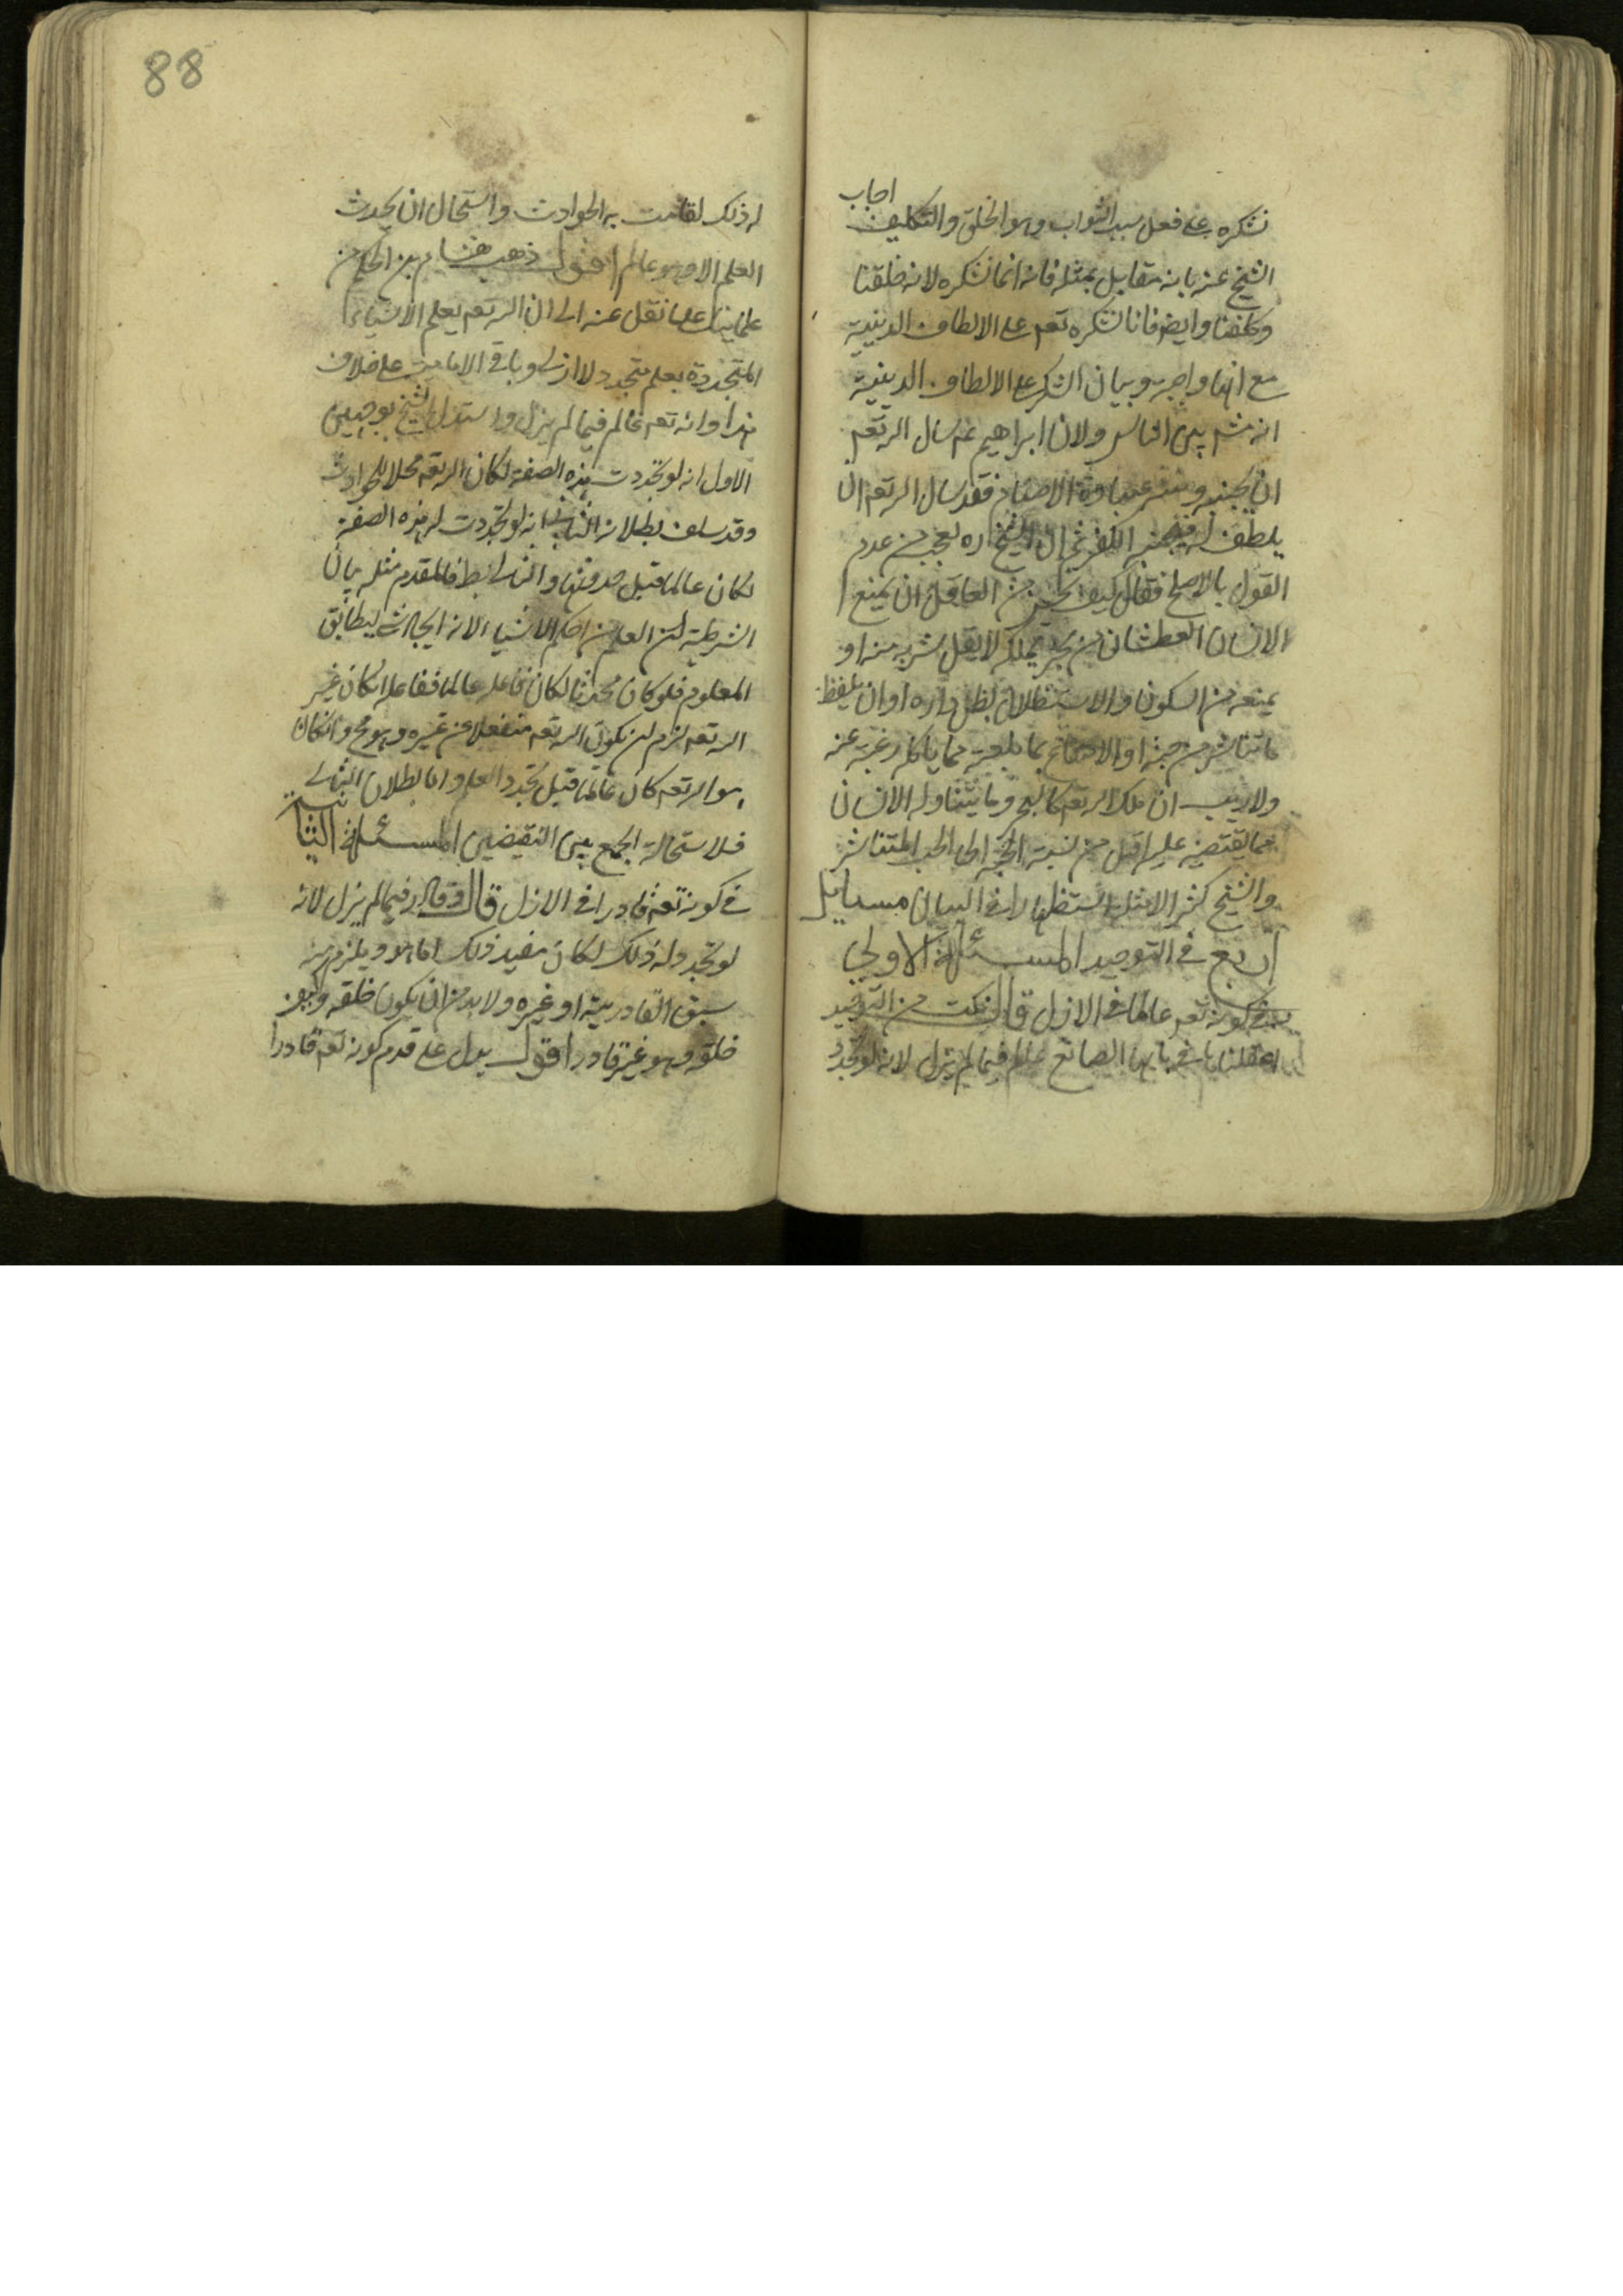 نشكره على فعل سبب الثواب وهو الخلق والتكليف اجاب
الشيخ عنه بانه مقابل بمثله فانه انما نشكره لانه خلقنا
وكلفنا وايض فانا نشكره تعم على الالطاف الدينية
مع انها واجبة وبيان الشكر على الالطاف الدينية
انه بين الناس ولان ابراهيم عم سال الله تعم
ان يجنبه عبادة الاصنام فقد سال الله تعم ان
يلطف له ثم ان الشيخ ره تعجب من عدم
القول بالاصلح فقال كيف يحسن من العاقل ان يمنع
الانسان العطشان من بحر يملكه لا يقل بشربه منه او
يمنعه من السكون والاستظلال بظل داره او ان يلفظ
ما تناثر من حبه او مما ياكله رغبة عنه
ولا ريب ان ملك الله تعم كالبحر وما يتناوله الانسان
مما يقتضيه عليه اقل من نسبة الحبة الى الحب المتناثر
والشيخ كثر الامثلة استظهارا في البيان مسايل
اربع في التوحيد المسئلة الاولى
في كونه تعم عالما في الازل قال نكت من التوحيد
الصانع عالم فيما لم يزل لانه لو تجدد
88
له ذلك لقامت به الحوادث واستحال ان يحدث
العلم الا وهو عالم اقول ذهب هشام بن الحكم من
علمائنا على ما نقل عنه الى ان الله تعم يعلم الاشياء
المتجددة بعلم متجدد لا ازلي وباقي الامامية على خلاف
هذا وانه تعم عالم فيما لم يزل واستدل الشيخ بوجهين
الاول انه لو تجددت هذه الصفة لكان الله تعم محلا للحوادث
وقد سلف بطلانه الثاني انه لو تجددت له هذه الصفة
لكان عالما قبل حدوثها والتالي بط فالمقدم مثله بيان
الشرطية ان العلم من احكم الاشياء لانه ليطابق
المعلوم فلو كان محدثا لكان فاعله عالما ففاعله ان كان غير
الله تعم لزم ان يكون الله تعم منفعلا عن غيره وهو مح وان كان
هو الله تعم كان عالما قبل تجدد العلم واما بطلان التالي
فلاستحالة الجمع بين النقيضين المسئلة الثانية
في كونه تعم قادرا في الازل قال وقادر فيما لم يزل لانه
لو تجدد له ذلك لكان مفيد ذلك اما هو ويلزم منه
سبق القادرية او غيره ولا بد من ان يكون خلقه وهو
خلقه وهو غير قادر اقول يدل على قدم كونه تعم قادرا